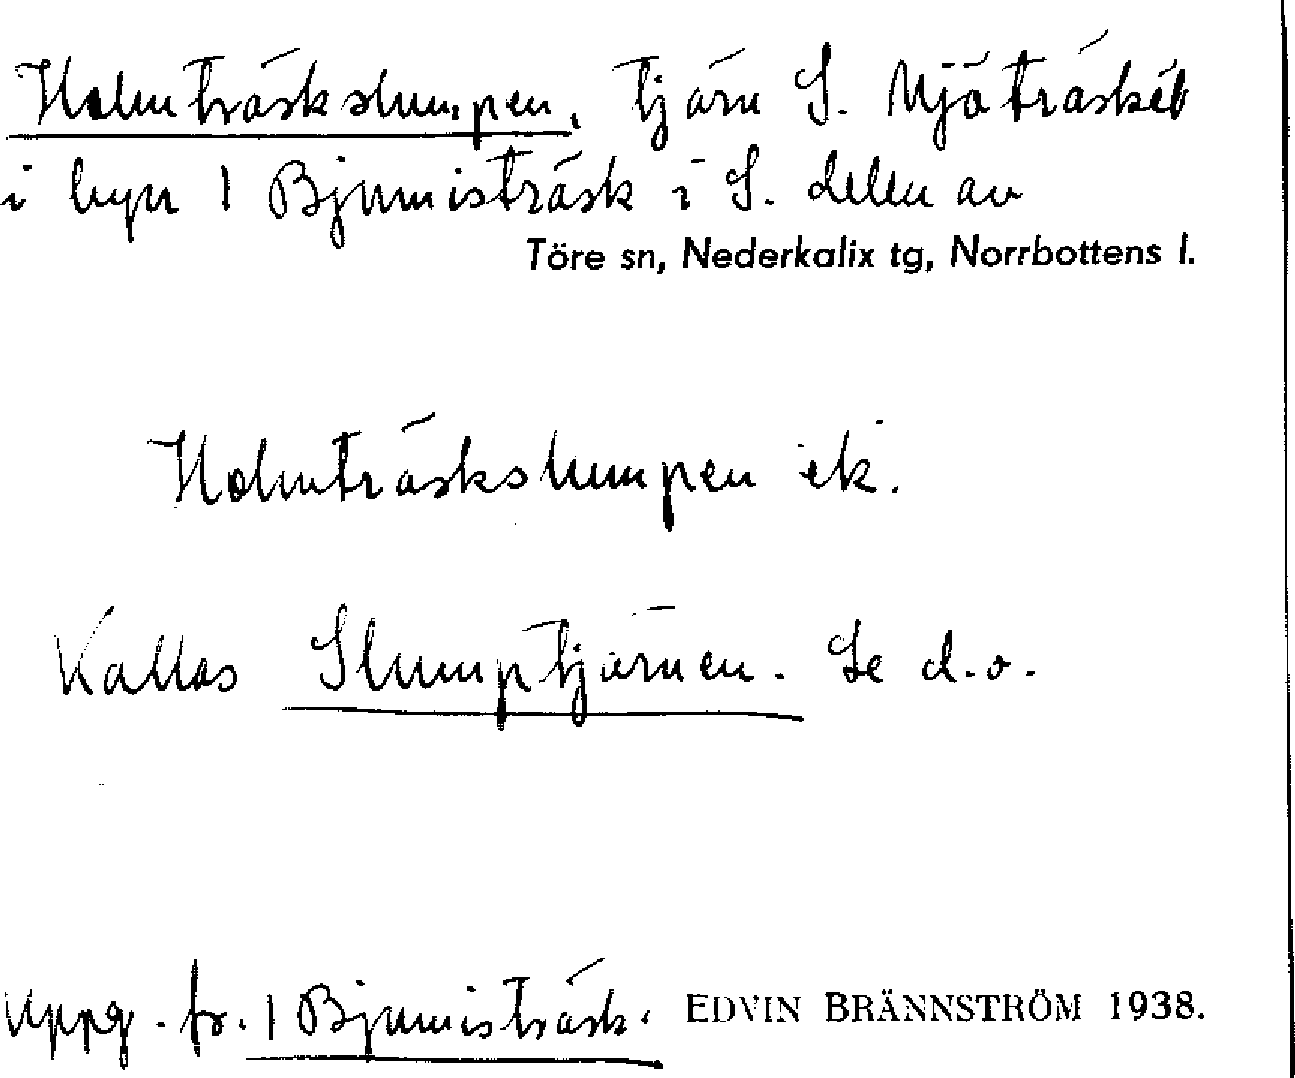 Holmträskslumpen, tjärn S. Mjöträsket
i byn 1 Bjumisträsk i S. delen av
Töre sn, Nederkalix tg, Norrbottens l.
Holmträskslumpen ek.
Kallas Slumptjärnen. Se d.o.
Uppg. fr. 1 Bjumisträsk. EDVIN BRÄNNSTRÖM 1938.